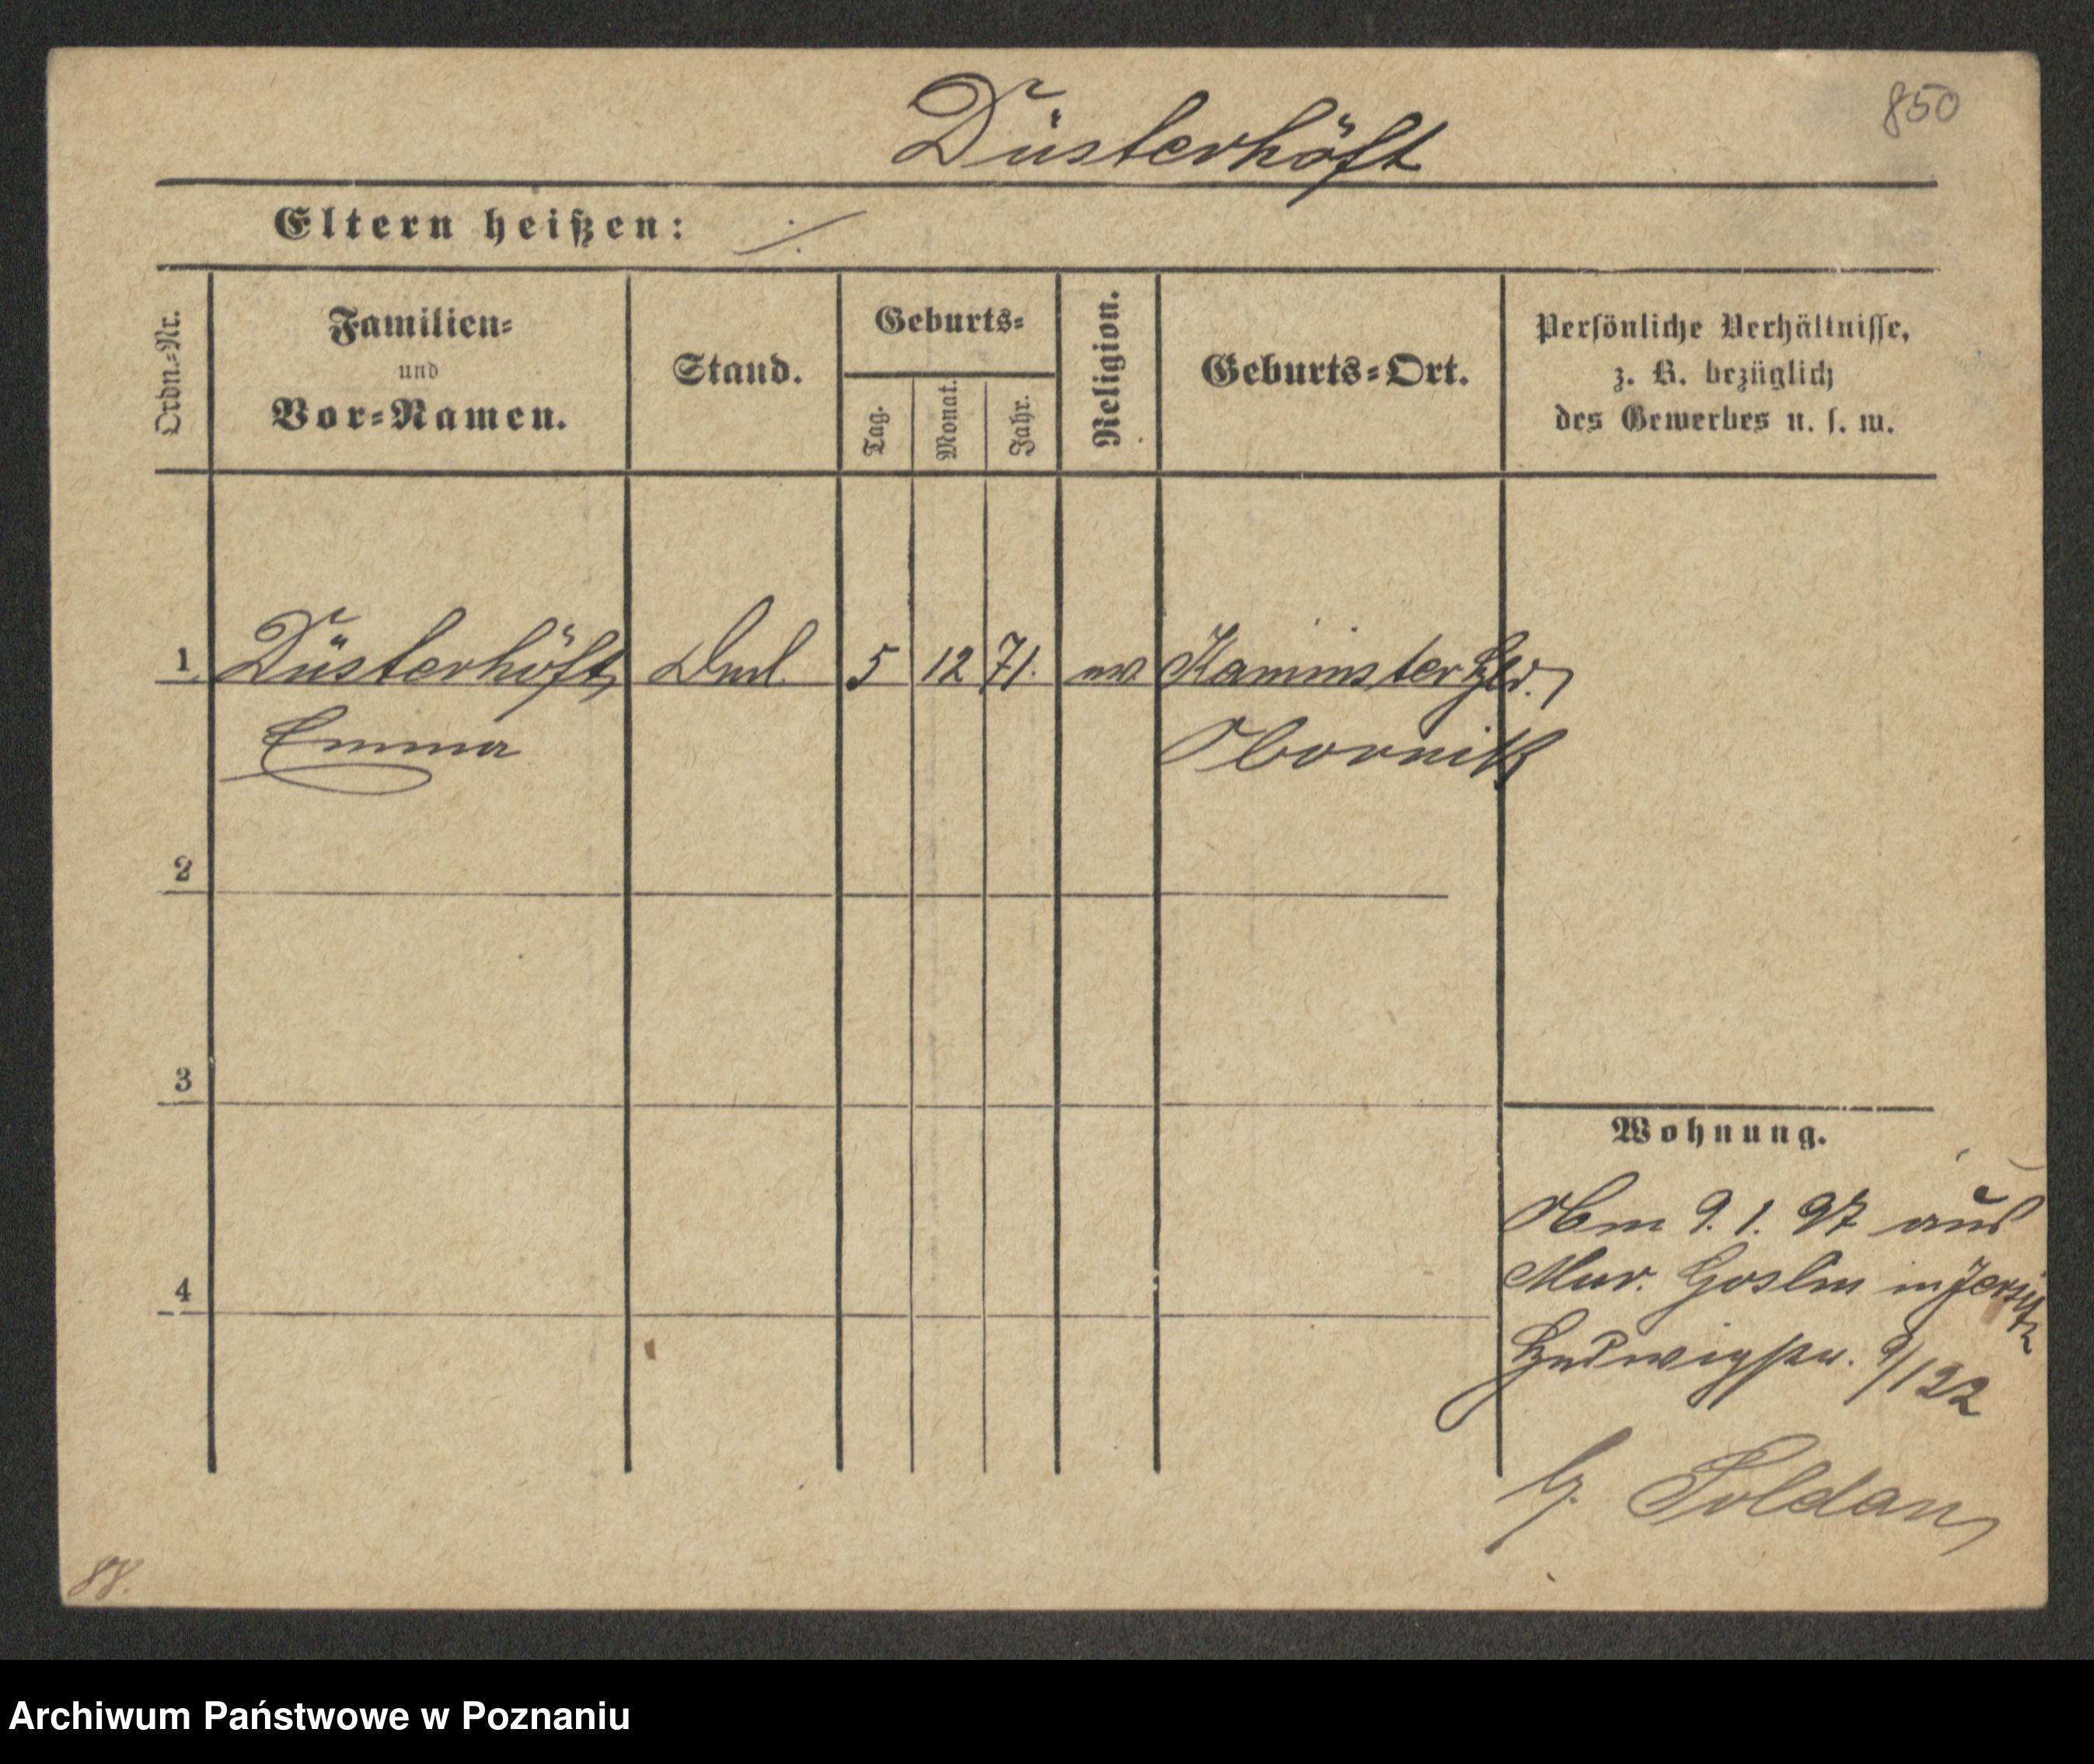 850
Düsterhöft
Eltern heißen: ./.
Ordn.=Nr.
Familien=
und
Vor=Namen.
Stand.
Geburts=
Tag.
Monat.
Jahr.
Religion.
Geburts=Ort.
Persönliche Verhältnisse,
z. B. bezüglich
des Gewerbes u. s. w.
1. Düsterhöft, 5 12 71. Kaminsker Hld.,
Emma Obornik
2
3
4
Wohnung.
9. 1. 97 aus
Mur. Goslin in Jersitz
Hedwigstr. 9/122
b. Soldan,
88.
Archiwum Państwowe w Poznaniu